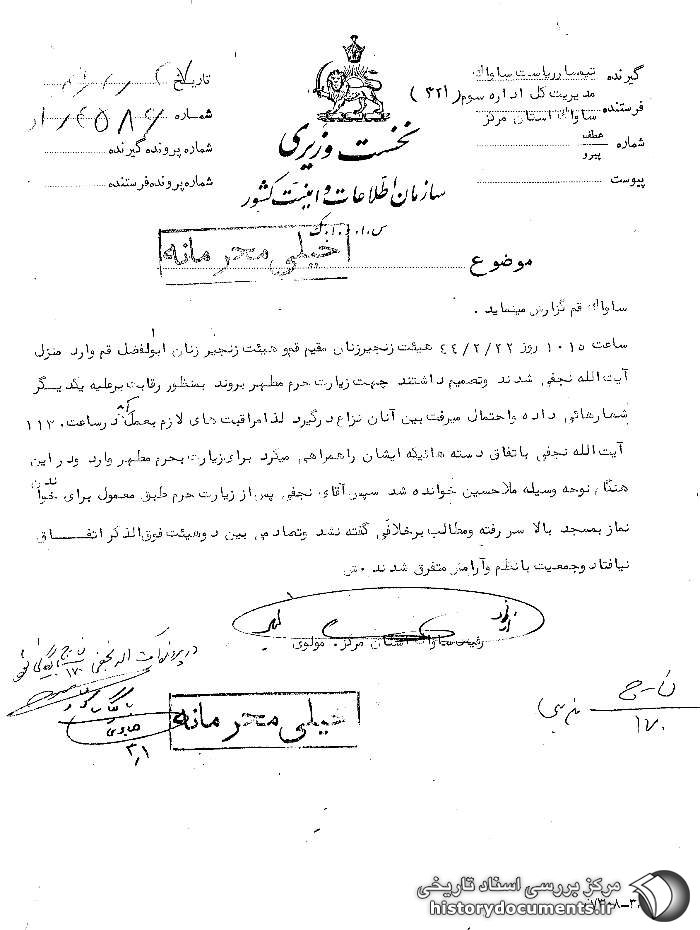 گیرنده تیمسار ریاست ساواک
مدیریت کل اداره سوم (۳۲۱)
فرستنده ساواک استان مرکز
شماره عطف
پیرو
پیوست
نخست وزیری
سازمان اطلاعات و امنیت کشور
تاریخ
شماره
شماره پرونده گیرنده
شماره پرونده فرستنده
خیلی محرمانه
موضوع
ساواک قم گزارش مینماید .
ساعت ۱۰۱۵ روز ۴۴/۲/۲۲ هیئت زنجیرزنان مقیم قم و هیئت زنجیر زنان ابوالفضل قم وارد منزل
آیت الله نجفی شدند وتصمیم داشتند جهت زیارت حرم مطهر بروند بمنظور رقابت برعلیه یکدیگر
شعارهائی داده واحتمال میرفت بین آنان نزاع درگیرد لذا مراقبت های لازم بعمل آمد درساعت ۱۱۳۰
آیت الله نجفی باتفاق دسته هائیکه ایشان راهمراهی میکرد برای زیارت بحرم مطهر وارد ودر این
هنگام نوحه وسیله ملاحسین خوانده شد سپس آقای نجفی پس از زیارت حرم طبق معمول برای خواندن
نماز بمسجد بالا سر رفته ومطالب برخلافی گفته نشد وتصادمی بین دوهیئت فوق الذکر اتفاق
نیافتاد وجمعیت بانظم وآرامش متفرق شدند ش
رئیس ساواک استان مرکز. مولوی
خیلی محرمانه
۱۷۰
۳/۱
مرکز بررسی اسناد تاریخی
historydocuments.ir